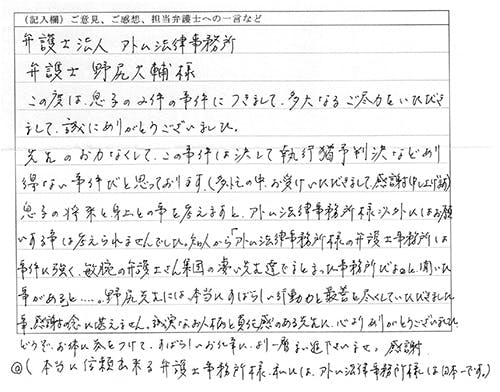 (記入欄) ご意見、ご感想、担当弁護士への一言など
弁護士法人 アトム法律事務所
弁護士 野尻大輔様
この度は、息子の件の事件につきまして、多大なるご尽力をいただき
まして、誠にありがとうございました。
先生のお力なくして、この事件は決して執行猶予判決などあり
得ない事件だと思っております。(多忙の中、お受けいただきまして、感謝申し上げます)
息子の将来と身上の事を考えますと、アトム法律事務所様以外にはお願
いする事は考えられませんでした。知人から「アトム法律事務所様の弁護士事務所は
事件に強く、敏腕の弁護士さん集団の凄い先生達でまとまった事務所だよ」と、聞いた
事があると……。野尻先生には、本当にすばらしい行動力と最善を尽くしていただきました
事、感謝の念に堪えません。誠実なお人柄と責任感のある先生に、心よりありがとうございました
どうぞ、お体に気をつけて、すばらしいお仕事に、より一層まい進下さいませ。感謝
◎(本当に信頼出来る弁護士事務所様、私には、アトム法律事務所様は日本一です。)